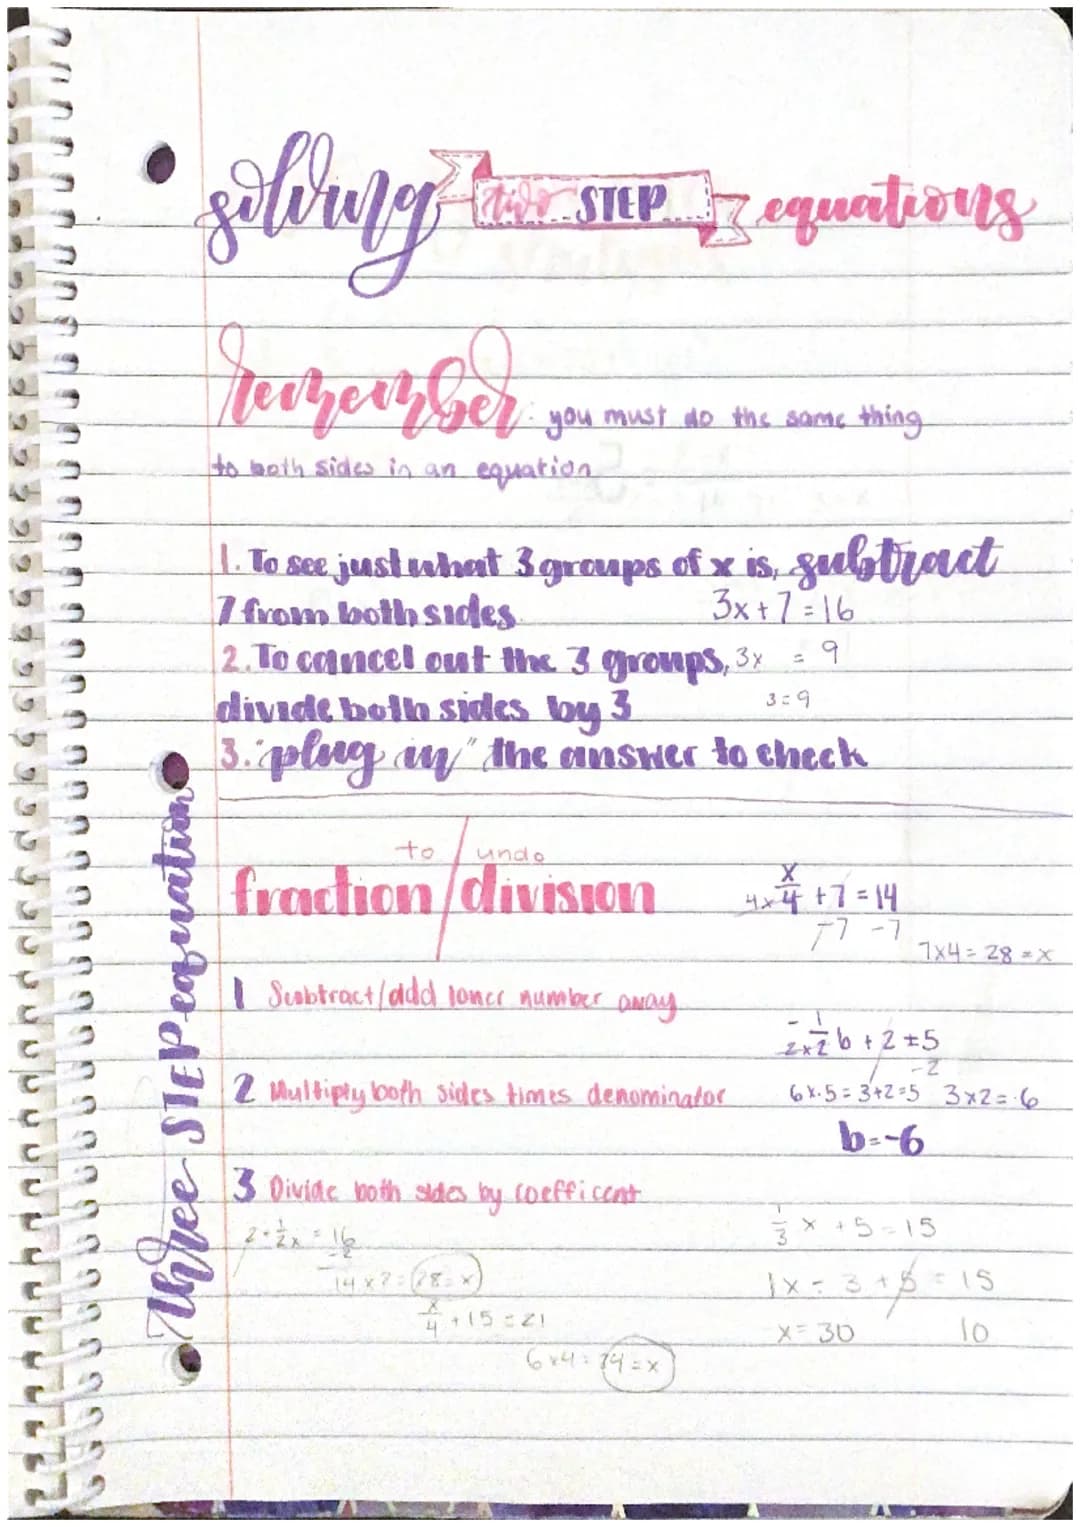 solving two STEP equations
remember: you must do the same thing
to both sides in an equation
1. To see just what 3 groups of x is, subtract
7 from both sides 3x + 7 = 16
2. To cancel out the 3 groups, 3x = 9
divide both sides by 3 3 = 9
3. "plug in" the answer to check
Three STEP equation
to / undo
fraction / division
4 × x/4 + 7 = 14
-7 -7
7x4 = 28 = x
1 Subtract/add loner number away
2 Multiply both sides times denominator
-2
3x2 = 6
b = -6
3 Divide both sides by coefficent
2 · 1/2x = 16
-2
14 x 2 = 28 = x
x/4 + 15 = 21
6x4 = 24 = x
1/3 x + 5 = 15
1x = 3 + 5 = 15
x = 30 10